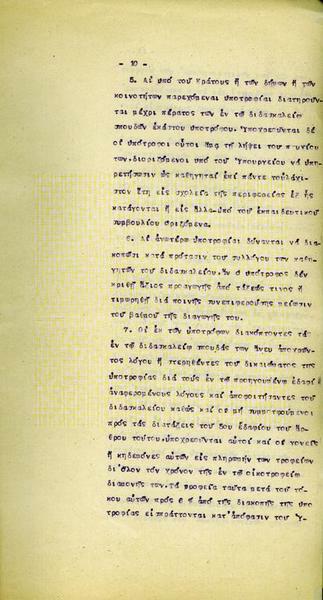 - 10 -
5. Αἱ ὑπό τοῦ Κράτους ἤ τῶν δήμων ἤ τῶν
κοινοτήτων παρεχόμεναι ὑποτροφίαι διατηροῦν
ται μέχρι πέρατος τῶν ἐν τῷ διδασκαλείῳ
σπουδῶν ἑκάστου ὑποτρόφου. Ὑποχρεοῦνται δέ
οἱ ὑπότροφοι οὗτοι ἅμα τῇ λήξει τοῦ
των, διοριζόμενοι ὑπό τοῦ Ὑπουργείου νά ὑπη
ρετήσωσιν ὡς καθηγηταί ἐπί πέντε τοὐλάχι-
στον ἔτη εἰς σχολεῖα τῆς περιφερείας ἐξ ἧς
κατάγονται ἤ εἰς ἄλλα ὑπό τοῦ ἐκπαιδευτικοῦ
συμβουλίου ὁριζόμενα.
6. Αἱ ἀνωτέρω ὑποτροφίαι δύνανται νά δια-
κοπῶσι κατά πρότασιν τοῦ συλλόγου τῶν καθη-
γητῶν τοῦ διδασκαλείου, ἄν ὁ ὑπότροφος δέν
κριθῇ ἄξιος προαγωγῆς ἀπό τάξεώς τινος ἤ
τιμωρηθῇ διά ποινῆς συνεπιφερούσης μείωσιν
τοῦ βαθμοῦ τῆς διαγωγῆς του.
7. Οἱ ἐκ τῶν ὑποτρόφων διακόπτοντες τάς
ἐν τῷ διδασκαλείῳ σπουδάς των ἄνευ
λόγου ἤ στερηθέντες τοῦ δικαιώματος τῆς
ὑποτροφίας διά τούς ἐν τῷ προηγουμένῳ ἐδαφίῳ
ἀναφερομένους λόγους καί ἀποφοιτήσαντες τοῦ
διδασκαλείου καθώς καί οἱ μή συμμορφούμενοι
πρός τάς διατάξεις τοῦ 5ου ἐδαφίου τοῦ ἄρ-
θρου τούτου, ὑποχρεοῦνται αὐτοί καί οἱ γονεῖς
ἤ κηδεμόνες αὐτῶν εἰς πληρωμήν τῶν τροφείων
δι'ὅλον τόν χρόνον τῆς ἐν τῷ οἰκοτροφείῳ
διαμονῆς των. Τά τροφεῖα ταῦτα μετά τοῦ τό-
κου αὐτῶν πρός 6 % ἀπό τῆς διακοπῆς τῆς ὑπο
τροφίας εἰσπράττονται κατ'ἀπόφασιν τοῦ Ὑ-